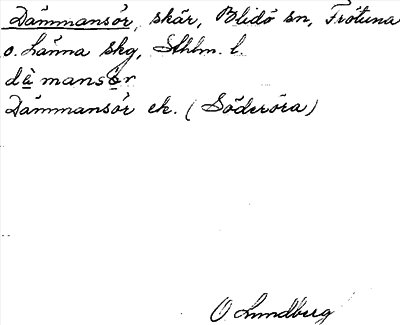 Dämmansör, skär, Blidö sn, Frötuna
o. Länna skg, Sthlm. l.
dämansör
Dämmansör ek. (Söderöra)
O Lundberg